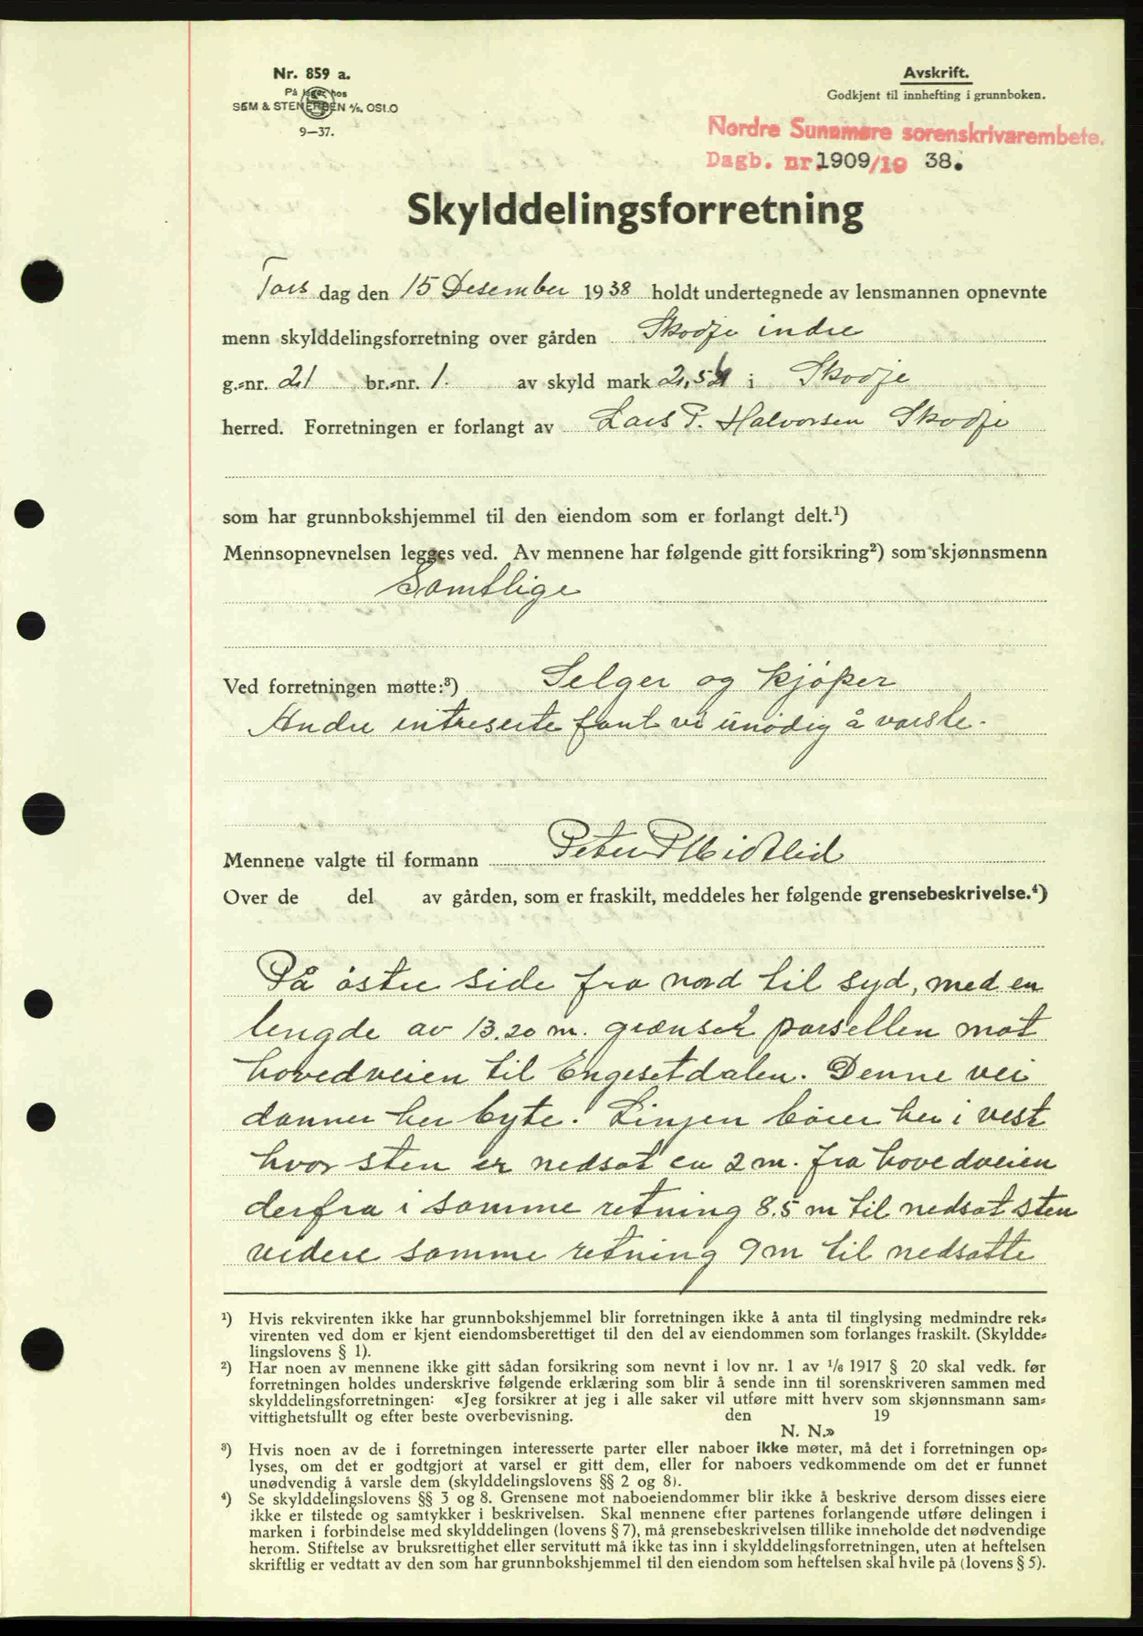 Nr. 859 a.
På lager hos
SEM & STENERSEN A/S, OSLO
9—37.
Avskrift.
Godkjent til innhefting i grunnboken.
Nordre Sunnmøre sorenskrivarembete.
Dagb. nr. 1909/19 38.
Skylddelingsforretning
Tors dag den 15 Desember 1938 holdt undertegnede av lensmannen opnevnte
menn skylddelingsforretning over gården Skodje indre
g.-nr. 21 br.-nr. 1. av skyld mark i Skodje
herred. Forretningen er forlangt av Lars P. Halvorsen Skodje
som har grunnbokshjemmel til den eiendom som er forlangt delt.¹)
Mennsopnevnelsen legges ved. Av mennene har følgende gitt forsikring²) som skjønnsmenn
Samtlige
Ved forretningen møtte:³) Selger og kjöper
Andre intreserte fant vi unödig å varsle.
Mennene valgte til formann Peter P Midtlid
Over de del av gården, som er fraskilt, meddeles her følgende grensebeskrivelse.⁴)
På östre side fra nord til syd, med en
lengde av 13.20 m. grænser parsellen mot
hovedveien til Engesetdalen. Denne vei
danner her byte. Linjen börer her i vest
hvor sten er nedsat ca 2 m. fra hovedveien
derfra i samme retning 8.5 m til nedsat sten
videre samme retning 9 m til nedsatte
¹) Hvis rekvirenten ikke har grunnbokshjemmel blir forretningen ikke å anta til tinglysing medmindre rek-
virenten ved dom er kjent eiendomsberettiget til den del av eiendommen som forlanges fraskilt. (Skyldde-
lingslovens § 1).
²) Har noen av mennene ikke gitt sådan forsikring som nevnt i lov nr. 1 av 1/6 1917 § 20 skal vedk. før
forretningen holdes underskrive følgende erklæring som blir å sende inn til sorenskriveren sammen med
skylddelingsforretningen: «Jeg forsikrer at jeg i alle saker vil utføre mitt hverv som skjønnsmann sam-
vittighetsfullt og efter beste overbevisning. den 19
N. N.»
³) Hvis noen av de i forretningen interesserte parter eller naboer ikke møter, må det i forretningen op-
lyses, om det er godtgjort at varsel er gitt dem, eller for naboers vedkommende om det er funnet
unødvendig å varsle dem (skylddelingslovens §§ 2 og 8).
⁴) Se skylddelingslovens §§ 3 og 8. Grensene mot naboeiendommer blir ikke å beskrive dersom disses eiere
ikke er tilstede og samtykker i beskrivelsen. Skal mennene efter partenes forlangende utføre delingen i
marken i forbindelse med skylddelingen (lovens § 7), må grensebeskrivelsen tillike inneholde det nødvendige
herom. Stiftelse av bruksrettighet eller servitutt må ikke tas inn i skylddelingsforretningen, uten at heftelsen
skriftlig er vedtatt av den som har grunnbokshjemmel til den eiendom som heftelsen skal hvile på (lovens § 5).